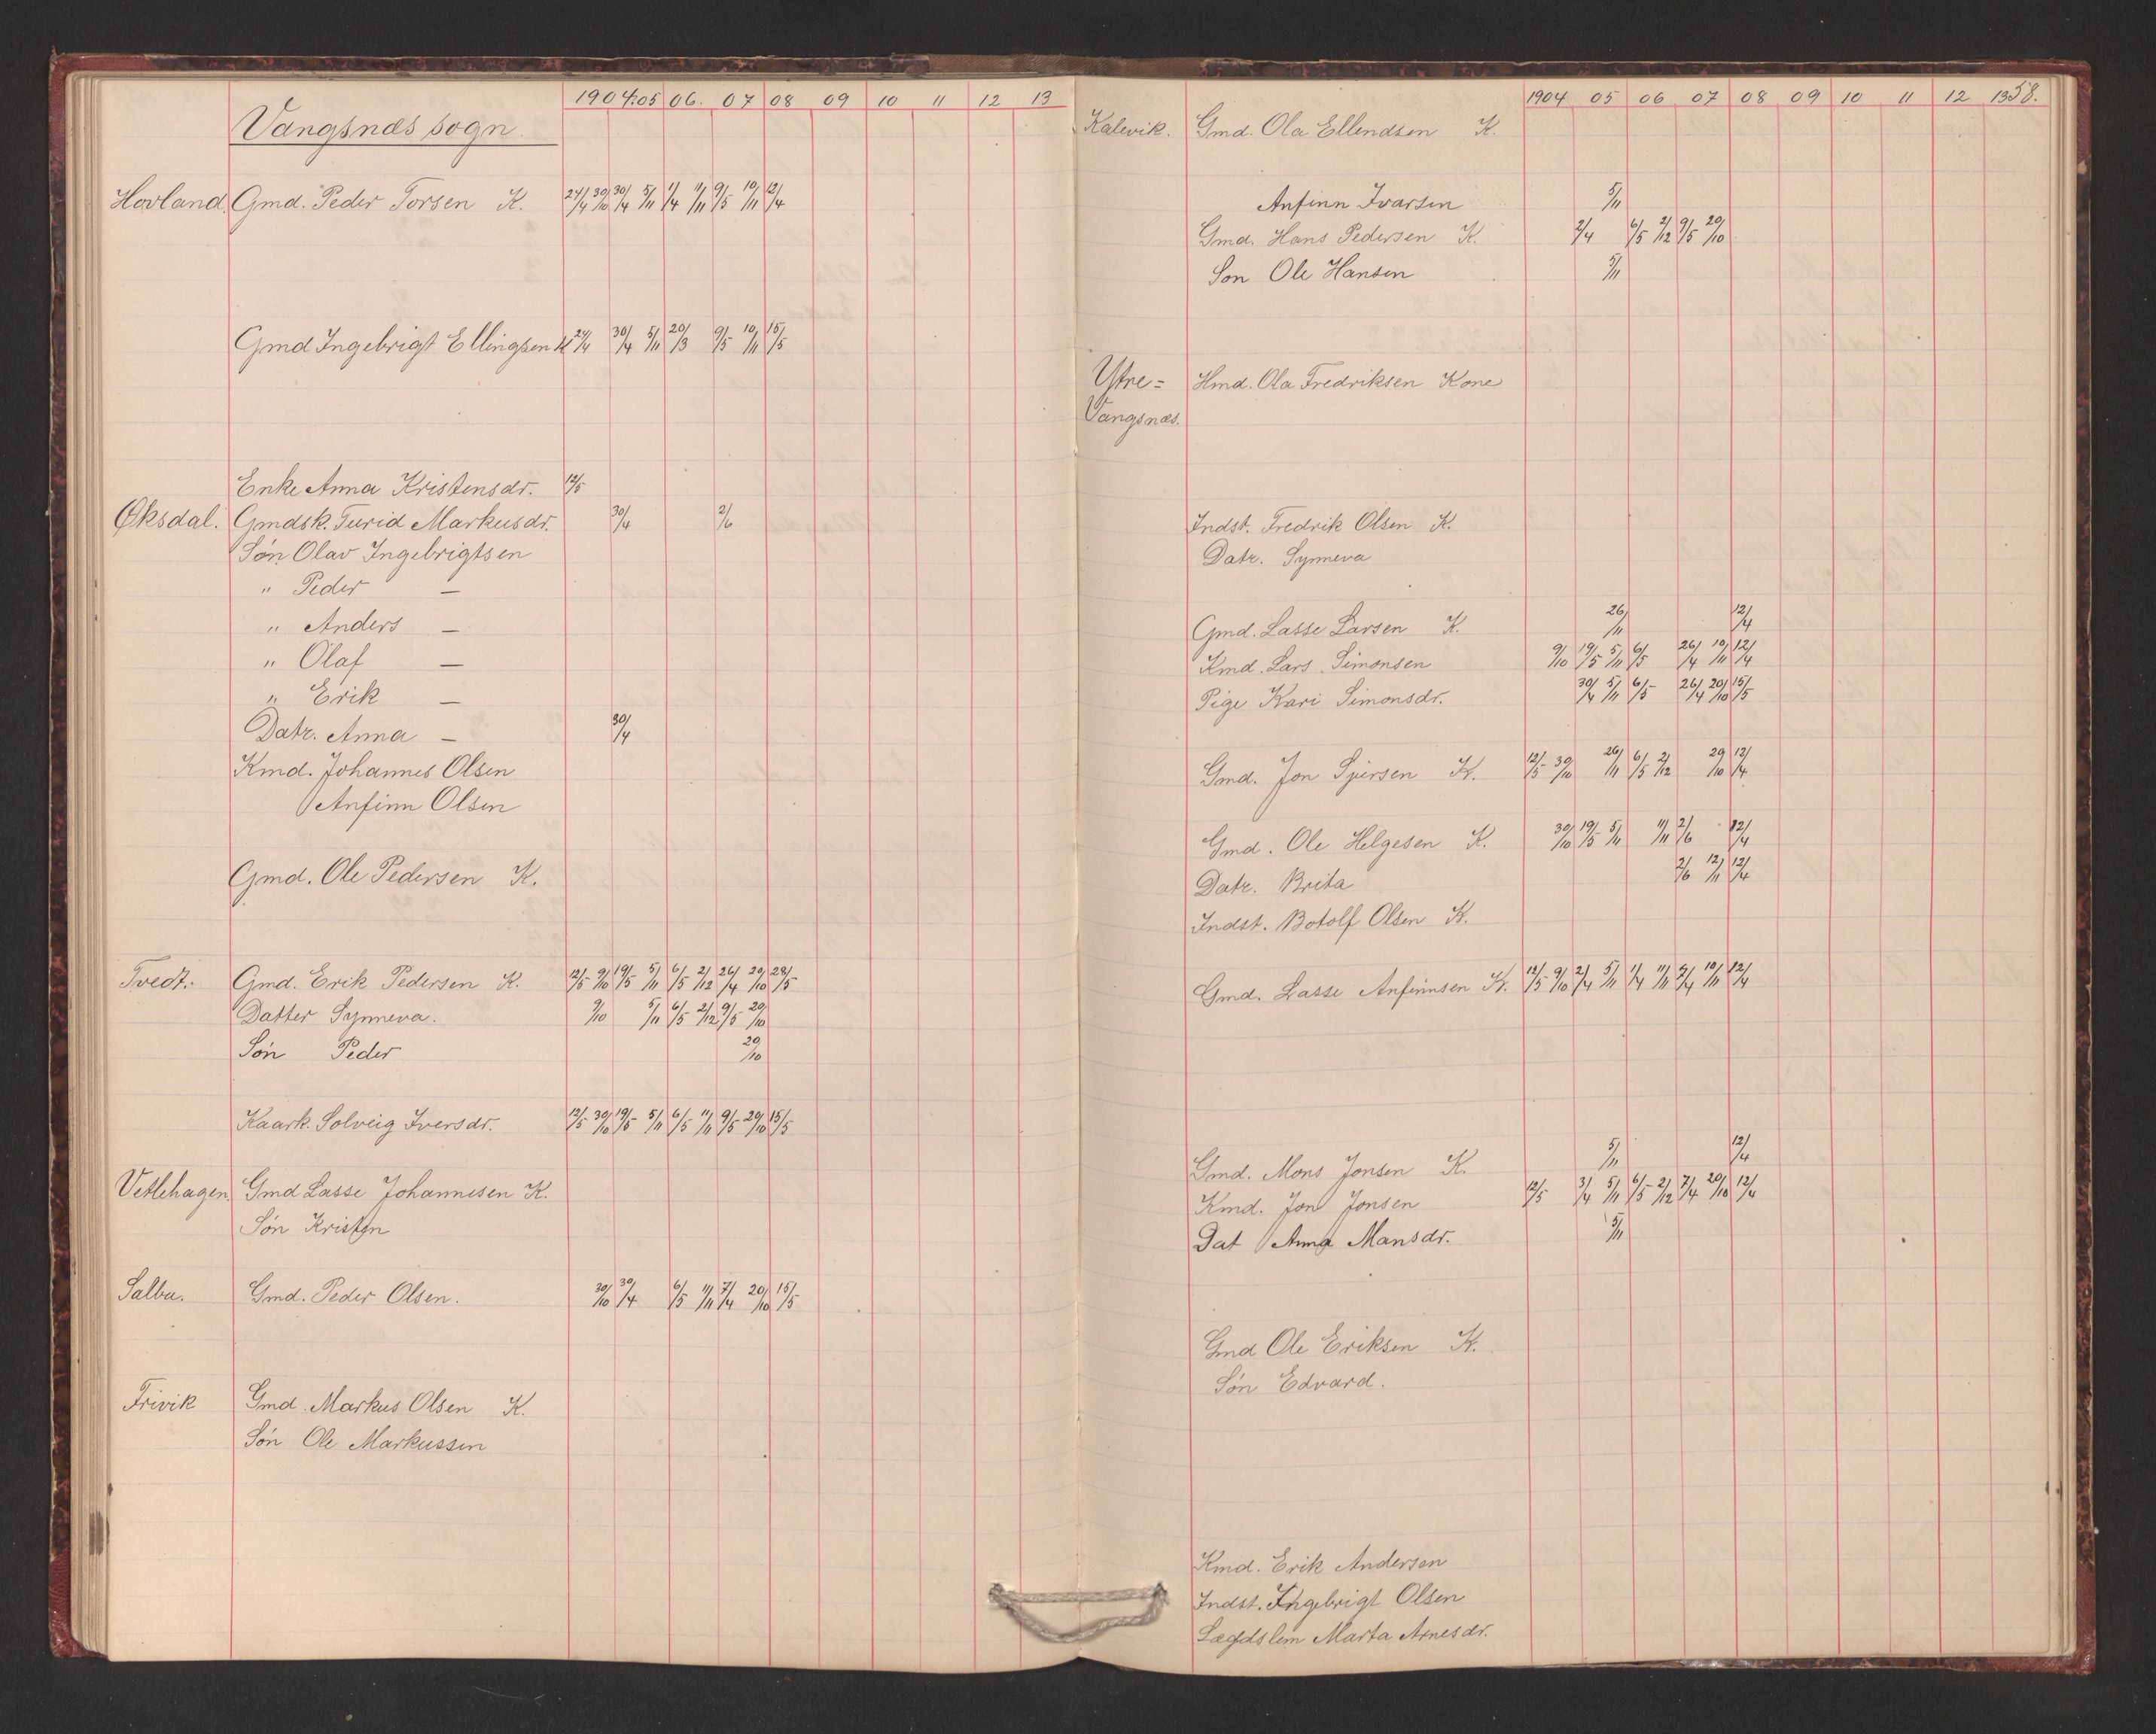 1904. 05 06. 07 08 09 10 11 12 13
Vangsnæs sogn.
Hovland. Gmd. Peder Torsen K. 24/4 30/10 30/4 5/11 1/4 11/11 9/5 10/11 12/4
Gmd Ingebrigt Ellingsen K 24/4 30/4 5/11 20/3 9/5 10/11 15/5
Enke Anna Kristensdr. 12/5
Øksdal. Gmdsk. Turid Markusdr. 30/4 2/6
Søn Olav Ingebrigtsen
" Peder —
" Anders —
" Olaf —
" Erik —
Datr. Anna — 30/4
Kmd. Johannes Olsen
Anfinn Olsen
Gmd. Ole Pedersen K.
Tvedt. Gmd. Erik Pedersen K. 12/5 9/10 19/5 5/11 6/5 2/12 26/4 20/10 28/5
Datter Synneva. 9/10 5/11 6/5 2/12 9/5 20/10
Søn Peder 20/10
Kaark. Solveig Iversdr. 12/5 30/10 19/5 5/11 6/5 11/11 9/5 20/10 15/5
Vetlehagen. Gmd Lasse Johannesen K.
Søn Kristen
Salbu. Gmd. Peder Olsen. 30/10 30/4 6/5 11/11 7/4 20/10 15/5
Trivik Gmd. Markus Olsen K.
Søn Ole Markussen
1904 05 06 07 08 09 10 11 12 13 58.
Kalevik. Gmd. Ola Ellendsen K.
Anfinn Ivarsen 5/11
Gmd. Hans Pedersen K. 2/4 6/5 2/12 9/5 20/10
Søn Ole Hansen 5/11
Ytre= Hmd. Ola Fredriksen Kone
Vangsnæs.
Indst. Fredrik Olsen K.
Datr. Synneva
Gmd. Lasse Larsen K. 26/11 12/4
Kmd. Lars Simonsen 9/10 19/5 5/11 6/5 26/4 10/11 12/4
Pige Kari Simonsdr. 30/4 5/11 6/5 26/4 20/10 15/5
Gmd. Jon Sjursen K. 12/5 30/10 26/11 6/5 2/12 20/10 12/4
Gmd. Ole Helgesen K. 30/10 19/5 5/11 11/11 2/6 12/4
Datr. Brita 2/6 12/11 12/4
Indst. Botolf Olsen K.
Gmd. Lasse Anfinnsen K. 12/5 9/10 2/4 5/11 1/4 11/11 7/4 10/11 12/4
Gmd. Mons Jonsen K. 5/11 12/4
Kmd. Jon Jonsen 12/5 3/4 5/11 6/5 2/12 7/4 20/10 12/4
Dat Anna Mansdr. 5/11
Gmd Ole Eriksen K.
Søn Edvard.
Kmd. Erik Andersen
Indst. Ingebrigt Olsen
Lægdslem Marta Arnesdr.